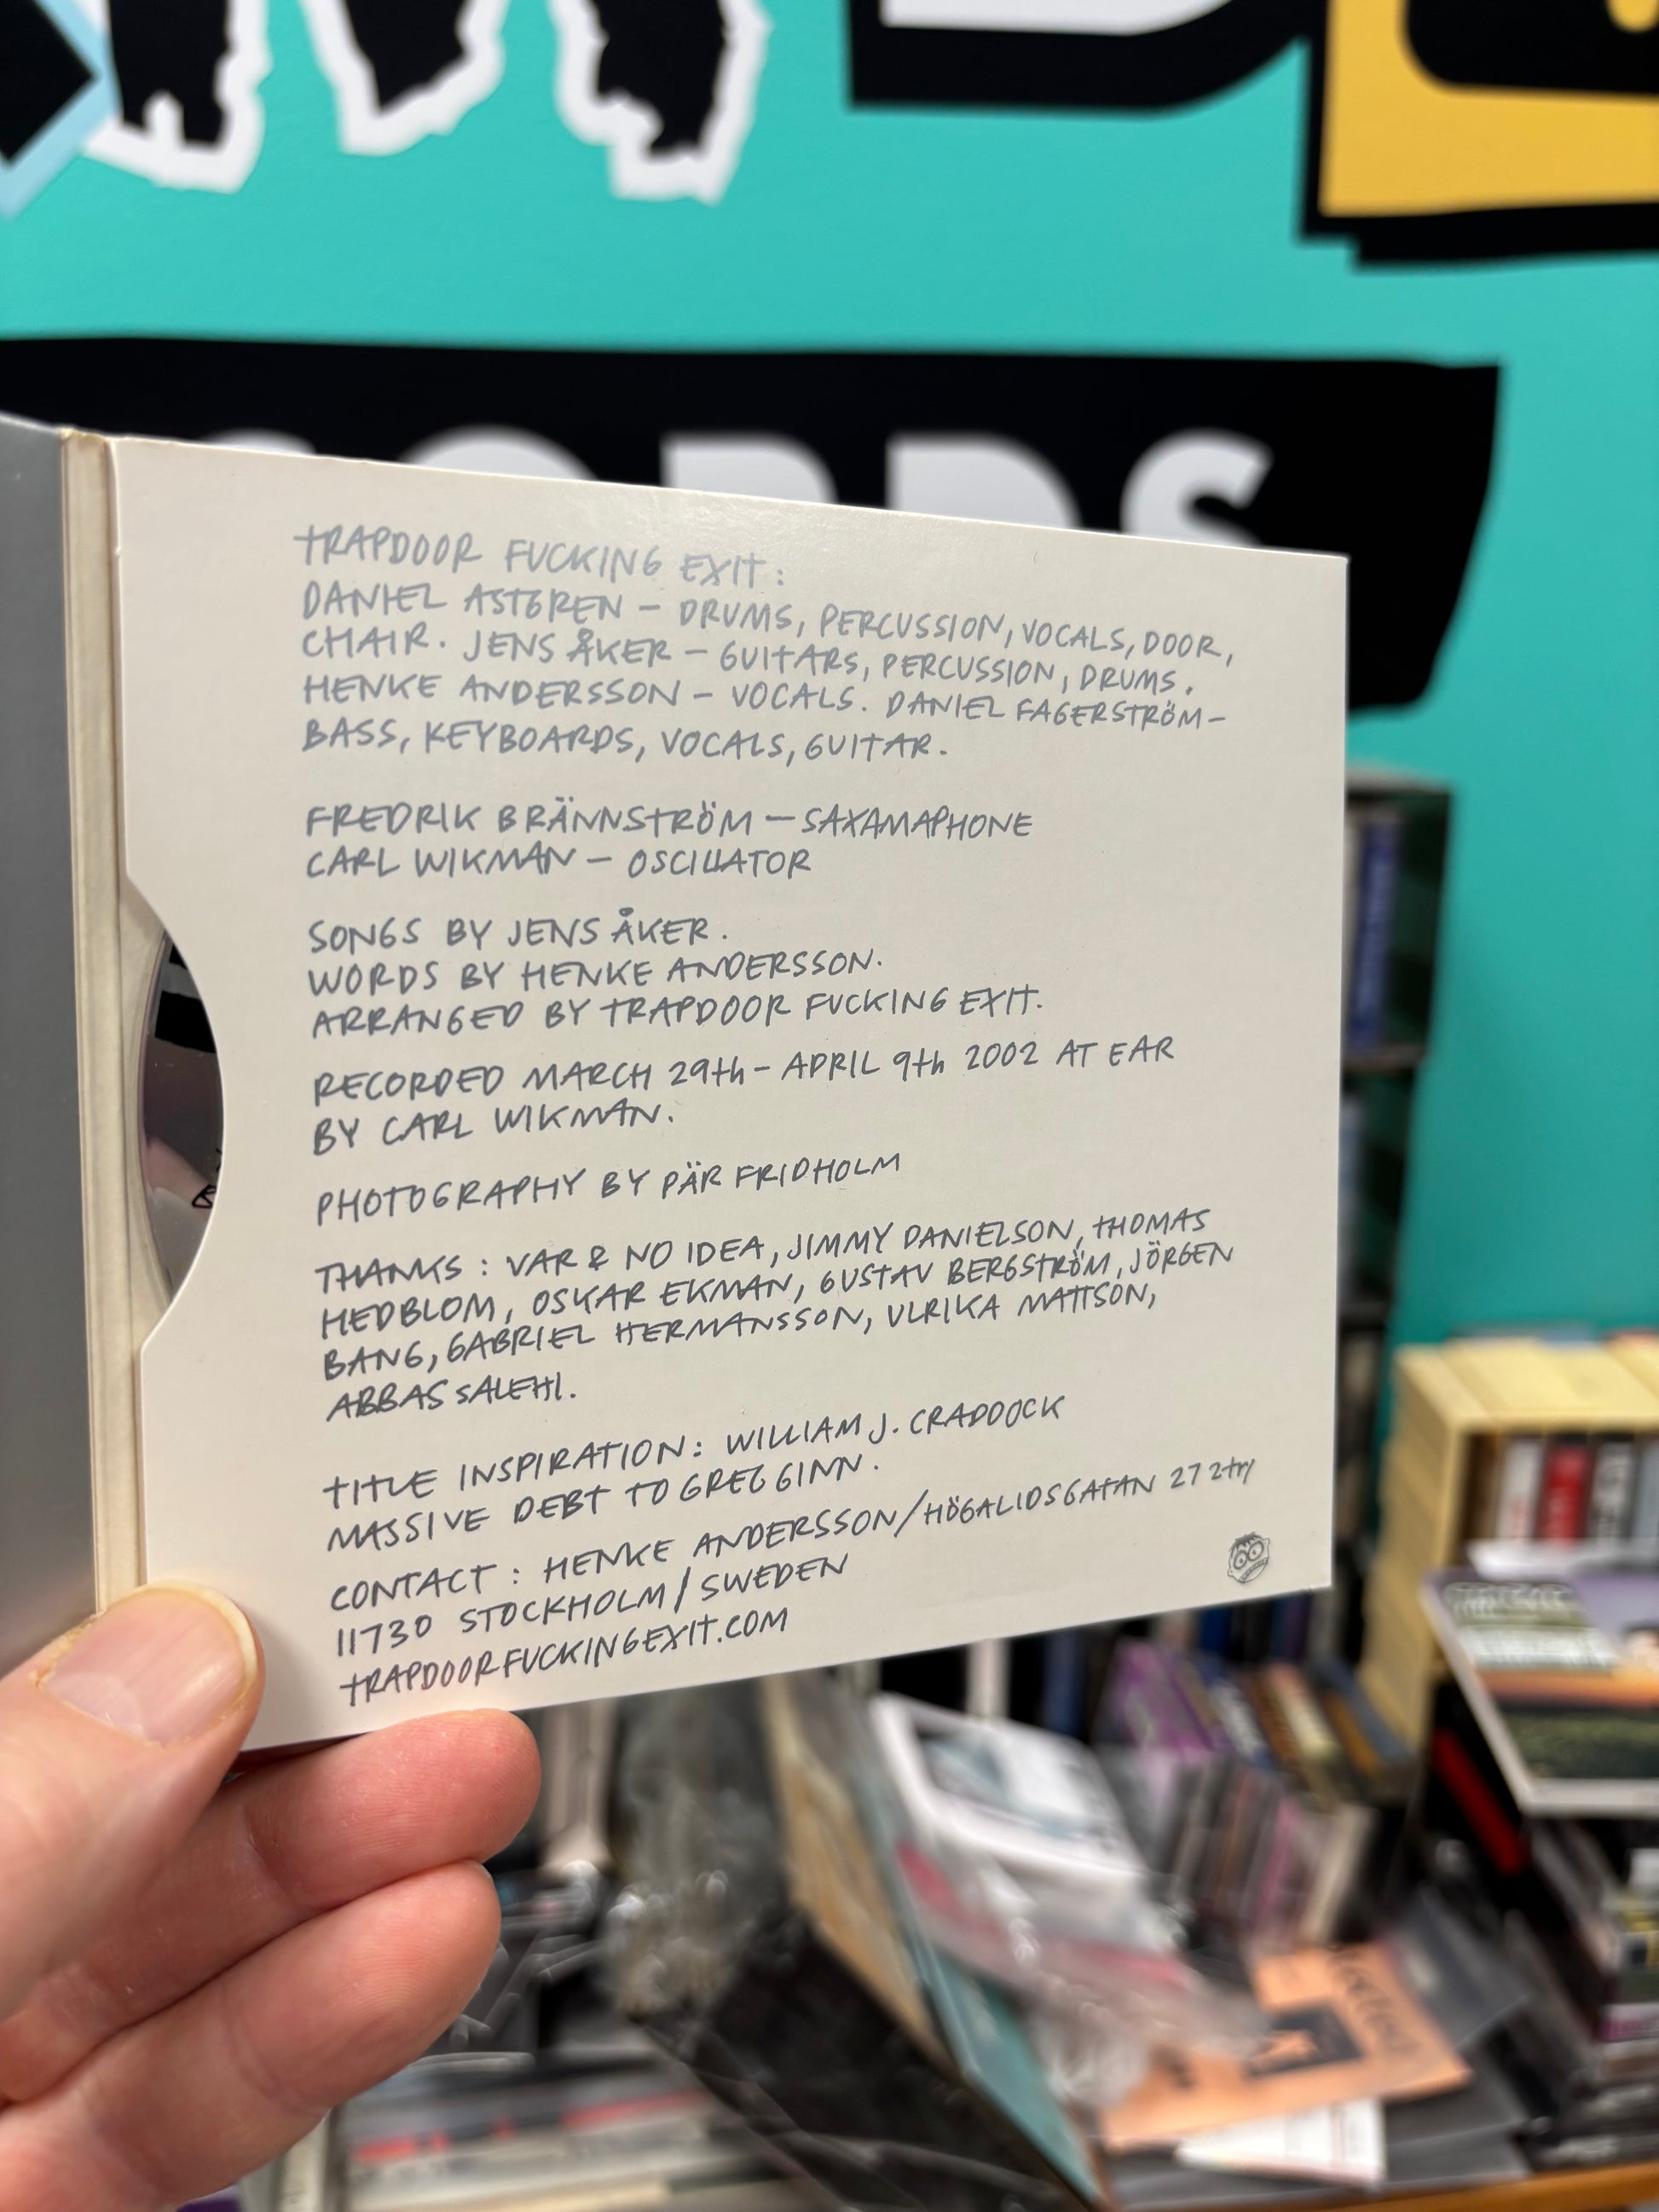 ORDS
TRAPDOOR FUCKING EXIT:
DANIEL ASTGREN – DRUMS, PERCUSSION, VOCALS, DOOR,
CHAIR. JENS ÅKER – GUITARS, PERCUSSION, DRUMS.
HENKE ANDERSSON – VOCALS. DANIEL FAGERSTRÖM –
BASS, KEYBOARDS, VOCALS, GUITAR.
FREDRIK BRÄNNSTRÖM – SAXAMAPHONE
CARL WIKMAN – OSCILLATOR
SONGS BY JENS ÅKER.
WORDS BY HENKE ANDERSSON.
ARRANGED BY TRAPDOOR FUCKING EXIT.
RECORDED MARCH 29th – APRIL 9th 2002 AT EAR
BY CARL WIKMAN.
PHOTOGRAPHY BY PÄR FRIDHOLM
THANKS: VAR & NO IDEA, JIMMY DANIELSON, THOMAS
HEDBLOM, OSKAR EKMAN, GUSTAV BERGSTRÖM, JÖRGEN
BANG, GABRIEL HERMANSSON, ULRIKA MATTSON,
ABBAS SALEHI.
TITLE INSPIRATION: WILLIAM J. CRADDOCK
MASSIVE DEBT TO GREG GINN.
CONTACT: HENKE ANDERSSON/HÖGALIDSGATAN 27 2tr/
11730 STOCKHOLM/SWEDEN
TRAPDOORFUCKINGEXIT.COM